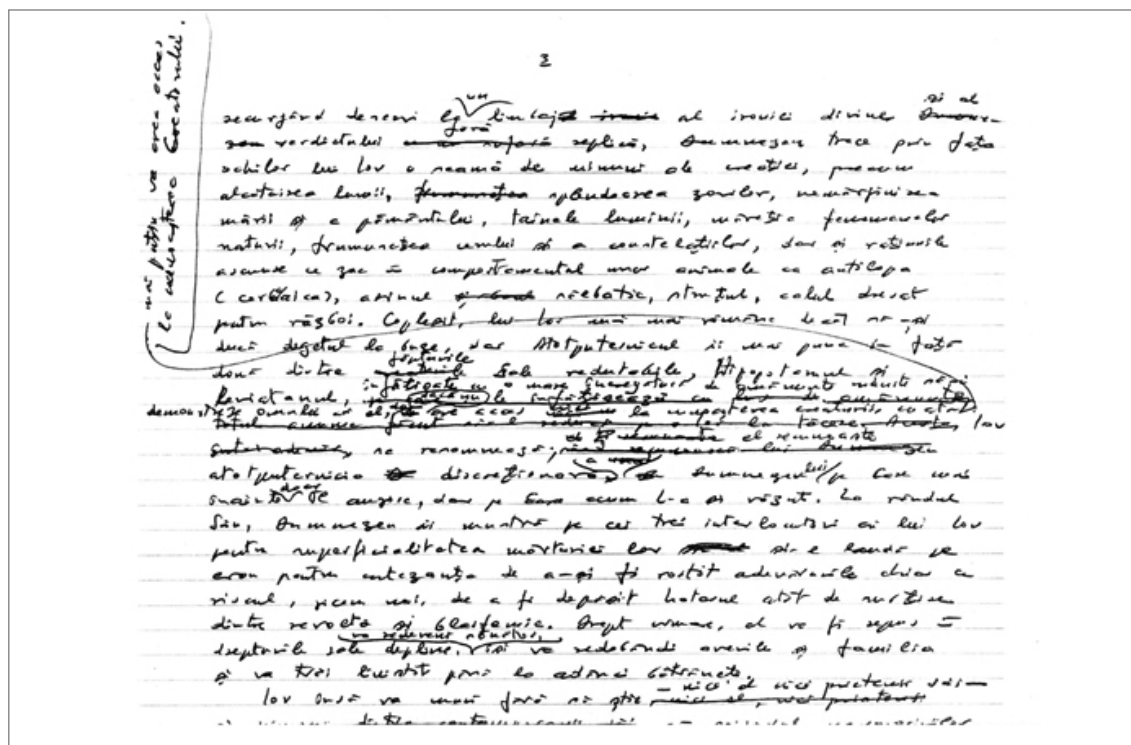 3
mai puțin va avea acces
la cunoașterea Creatorului.
recurgând deseori la un limbaj al ironiei divine și al
verdictului fără replică, Dumnezeu trece prin fața
ochilor lui Iov o seamă de minuni ale creației, precum
alcătuirea lumii, splendoarea zorilor, nemărginirea
mării și a pământului, tainele luminii, măreția fenomenelor
naturii, frumusețea cerului și a constelațiilor, dar și rațiunile
ascunse ce zac în comportamentul unor animale ca antilopa
(cerboaica), asinul sălbatic, struțul, calul dresat
pentru război. Copleșit, lui Iov nu-i mai rămâne decât să-și
ducă degetul la buze, dar Atotputernicul îi mai pune în față
două dintre făpturile Sale redutabile, Hipopotamul și
Leviatanul, înfățișate cu o mare de amănunte menite să-i
demonstreze omului că el, care are acces la cunoașterea creaturii, cu atât
Iov
se recunoaște
atotputernicia discreționară a lui Dumnezeu, pe Care mai
înainte doar Îl auzise, dar pe Care acum L-a și văzut. La rândul
Său, Dumnezeu îi mustră pe cei trei interlocutori ai lui Iov
pentru superficialitatea mărturiei lor și-l laudă pe
erou pentru cutezanța de a-și fi rostit adevărurile chiar cu
riscul, zicem noi, de a fi depășit hotarul atât de subțire
dintre revoltă și blasfemie. Drept urmare, el va fi repus în
drepturile sale depline, va redeveni sănătos, își va redobândi averile și familia
și va trăi liniștit până la adânci bătrânețe.
Iov însă va muri fără să știe – nici el, nici prietenii săi –